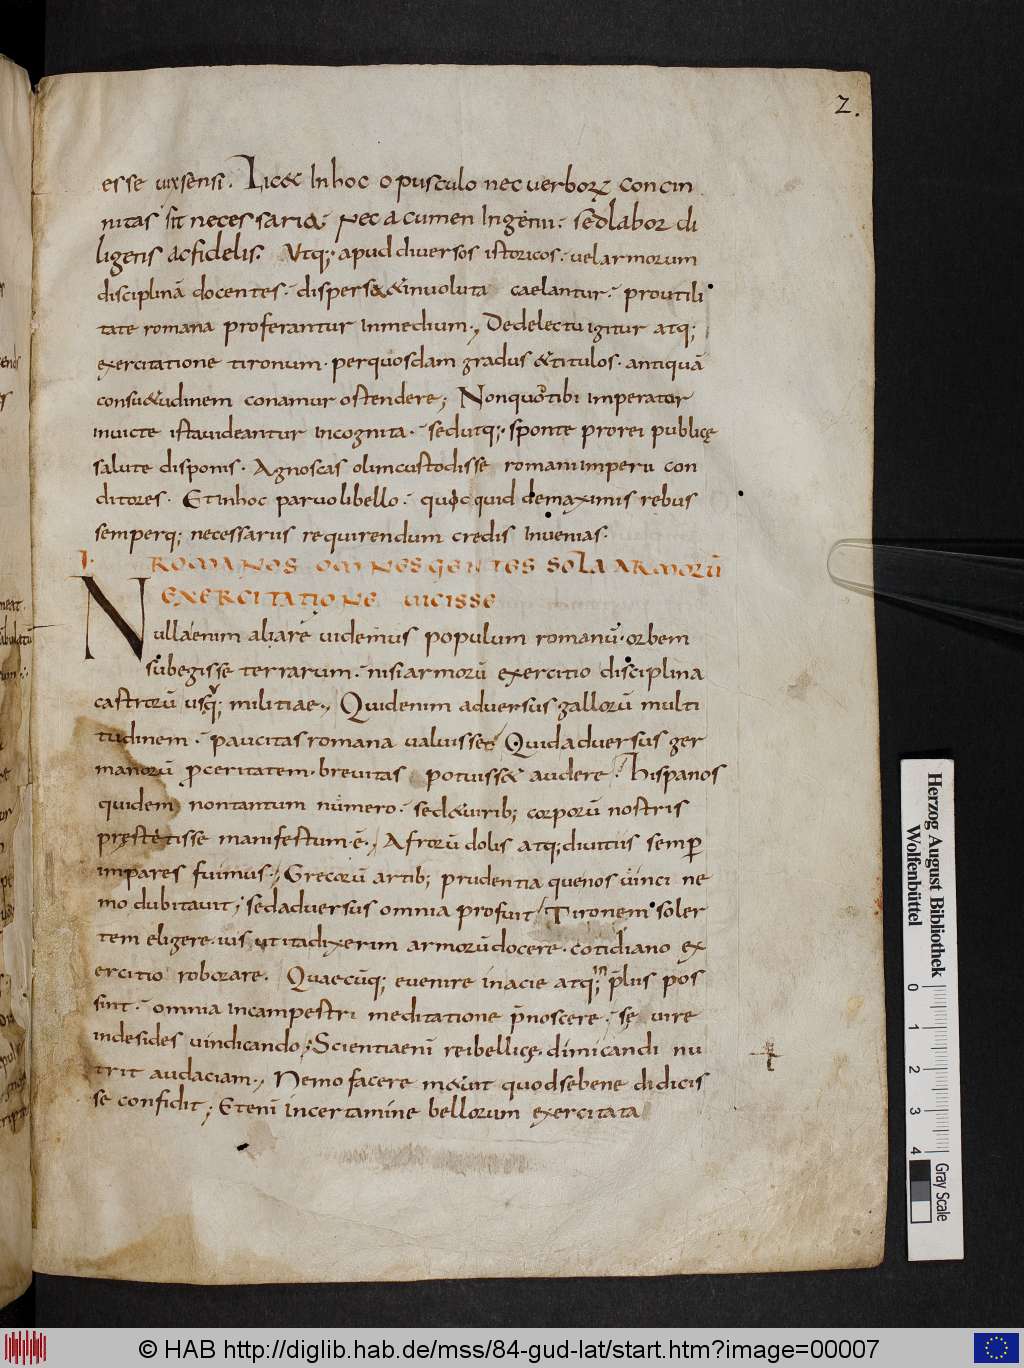 2.
esse uix sensi. Licet In hoc opusculo nec uerborꝝ concin
nitas sit necessaria; Nec acumen Ingenii; Sed labor di
ligens ac fidelis. Utq; apud diuersos istoricos; uel armorum
disciplinā docentes; dispersa & inuoluta caelantur; pro utili
tate romana proferantur in medium., De delectu igitur atq;
exercitatione tironum. per quosdam gradus & titulos. antiquā
consu&udinem conamur ostendere; Non quo tibi imperator
inuicte ista uideantur incognita. sed utq; sponte pro rei publicę
salute disponis. Agnoscas olim custodisse romani imperii con
ditores. Et in hoc paruo libello. quicquid de maximis rebus
semperq; necessariis requirendum credis Inuenias.
I. ROMANOS OMNES GENTES SOLA ARMORŪ
EXERCITATIONE UICISSE
Nulla enim alia re uidemus populum romanū. orbem
subegisse terrarum. nisi armorū exercitio disciplina
castrorū usq; militiae., Quid enim aduersus gallorū multi
tudinem. paucitas romana ualuisset Quid aduersus ger
manorū proceritatem. breuitas potuiss& audere. hispanos
quidem non tantum numero. sed & uirib; corporū nostris
pręstetisse manifestum ē., Afrorū dolis atq; diuitiis semꝑ
impares fuimus., Grecorū artib; prudentia que nos uinci ne
mo dubitauit; sed aduersus omnia profuit Tironem soler
tem eligere. uis ut ita dixerim armorū docere. cotidiano ex
ercitio roborare. Quaecūq; euenire in acie atq; in p̄liis pos
sint. omnia in campestri meditatione p̄noscere. sęuire
in desides uindicando; Scientia enī rei bellicę. dimicandi nu
trit audaciam., Nemo facere m&uit quod se bene didicis
se confidit; Etenī in certamine bellorum exercitata
Herzog August Bibliothek
Wolfenbüttel
0 1 2 3 4
Gray Scale
© HAB http://diglib.hab.de/mss/84-gud-lat/start.htm?image=00007